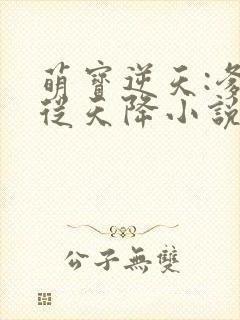 萌寶逆天:爹
從天降小說
公子無雙